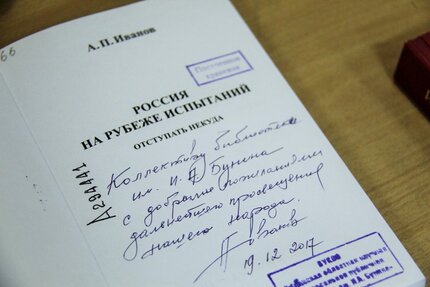 66
А.П. Иванов
Посменное
хранение
РОССИЯ
НА РУБЕЖЕ ИСПЫТАНИЙ
ОТСТУПАТЬ НЕКУДА
А294441
Коллективу библиотеки
им. И. А. Бунина
с добрыми пожеланиями
дальнейшего просвещения
нашего народа.
Иванов
19.12.2017
БУКОО
областная научная
публичная
И.А. Бунина